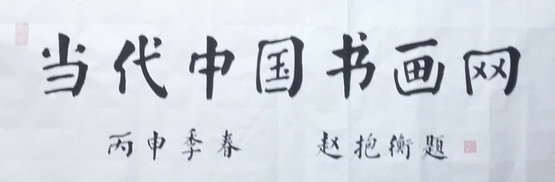 当代中国书画网
丙申季春 赵抱衡题